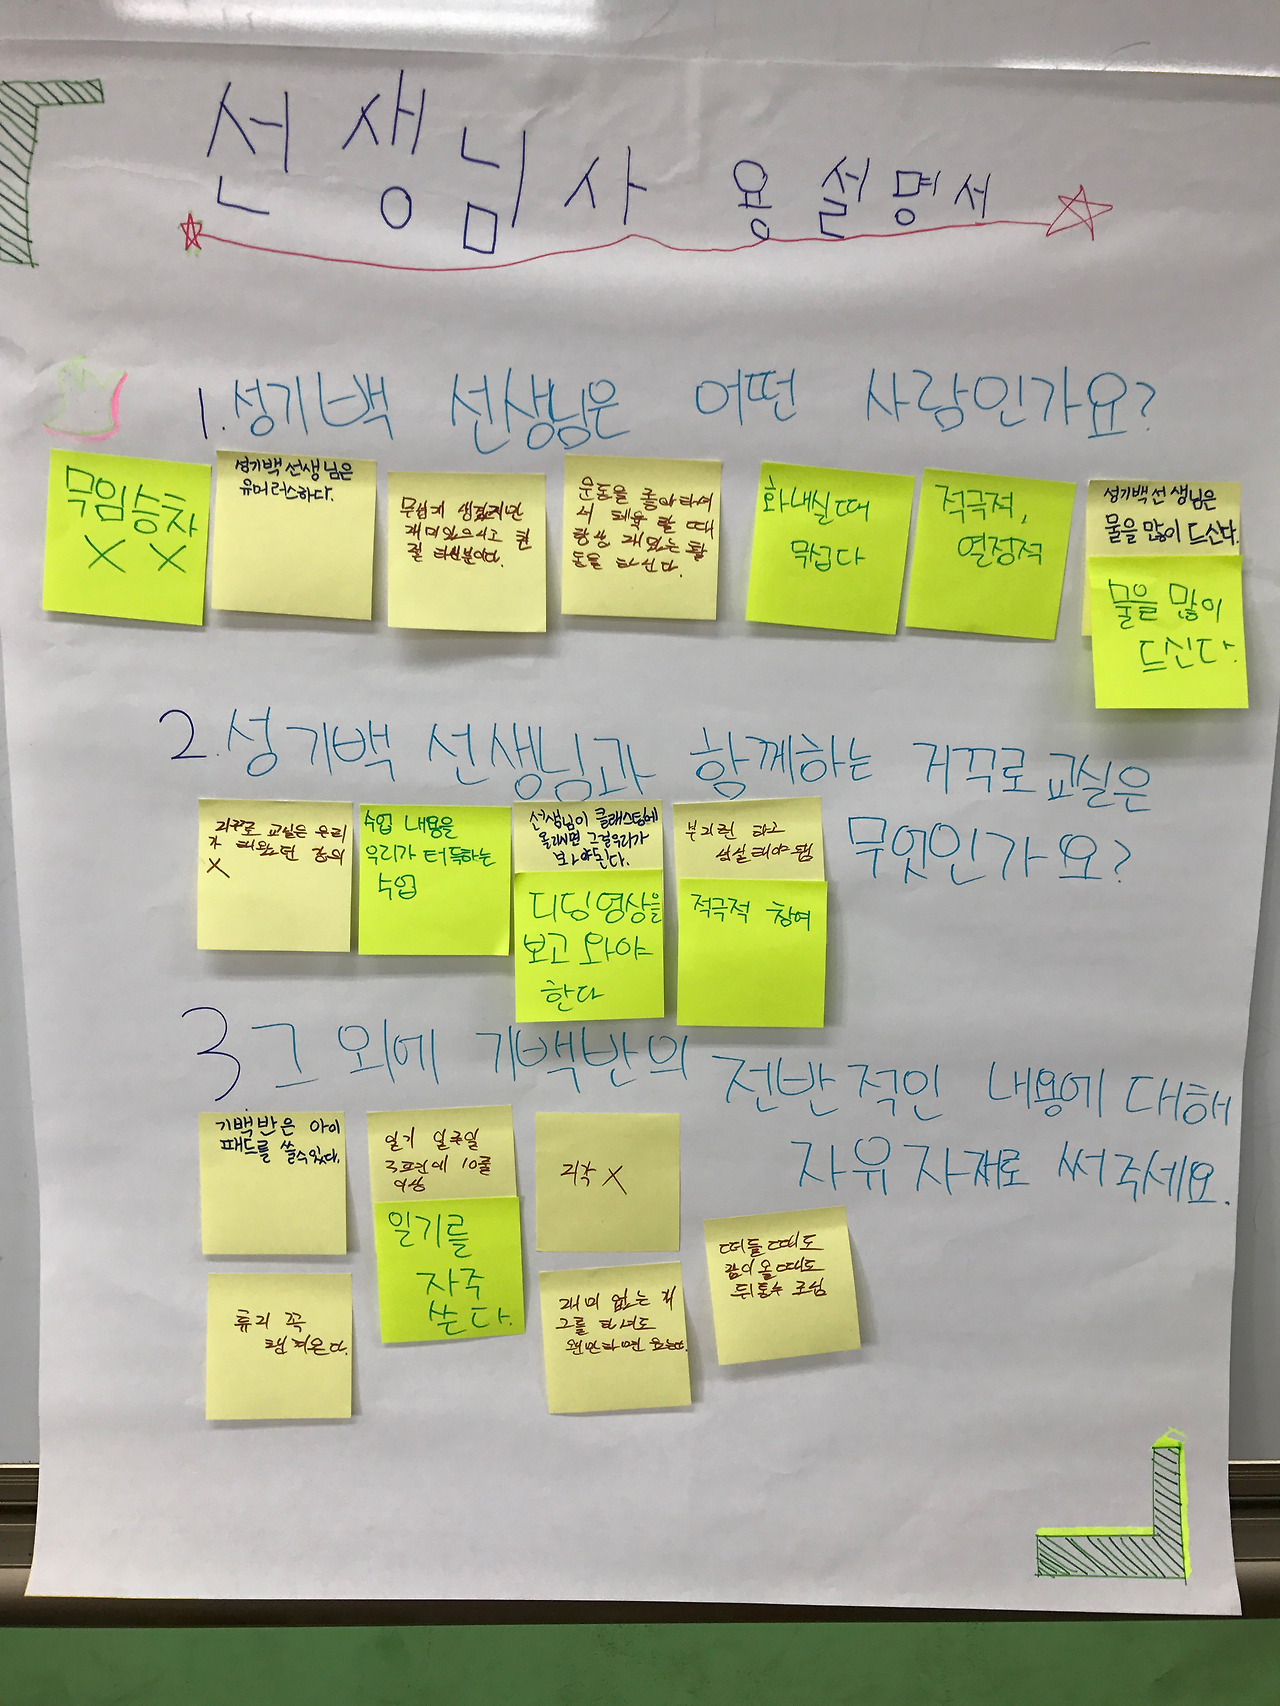 선생님사용설명서
1. 성기백 선생님은 어떤 사람인가요?
무임승차
X X
성기백선생님은
유머러스하다.
무섭게 생겼지만
재미있으시고 친
절 하신분이다.
운동을 좋아하셔
서 체육 할 때
항상 재밌는 활
동을 하신다.
화내실때
무섭다
적극적,
열정적
성기백선생님은
물을 많이 드신다.
물을 많이
드신다.
2. 성기백 선생님과 함께하는 거꾸로교실은
무엇인가요?
거꾸로 교실은 우리
가 해왔던 강의
X
수업 내용을
우리가 터득하는
수업
선생님이 클래스팅에
올리시면 그걸우리가
보아야된다.
디딩영상을
보고 와야
한다
부지런 하고
성실해야됨
적극적 참여
3 그 외에 기백반의 전반적인 내용에 대해
자유자재로 써주세요.
기백반은 아이
패드를 쓸수있다.
일기 일주일
3편 10줄
이상
일기를
자주
쓴다.
지각 X
떠들때도
같이올때도
뒤통수 조심
휴지 꼭
챙겨온다.
재미 없는 개
그를 하셔도
웬만하면 웃는다.